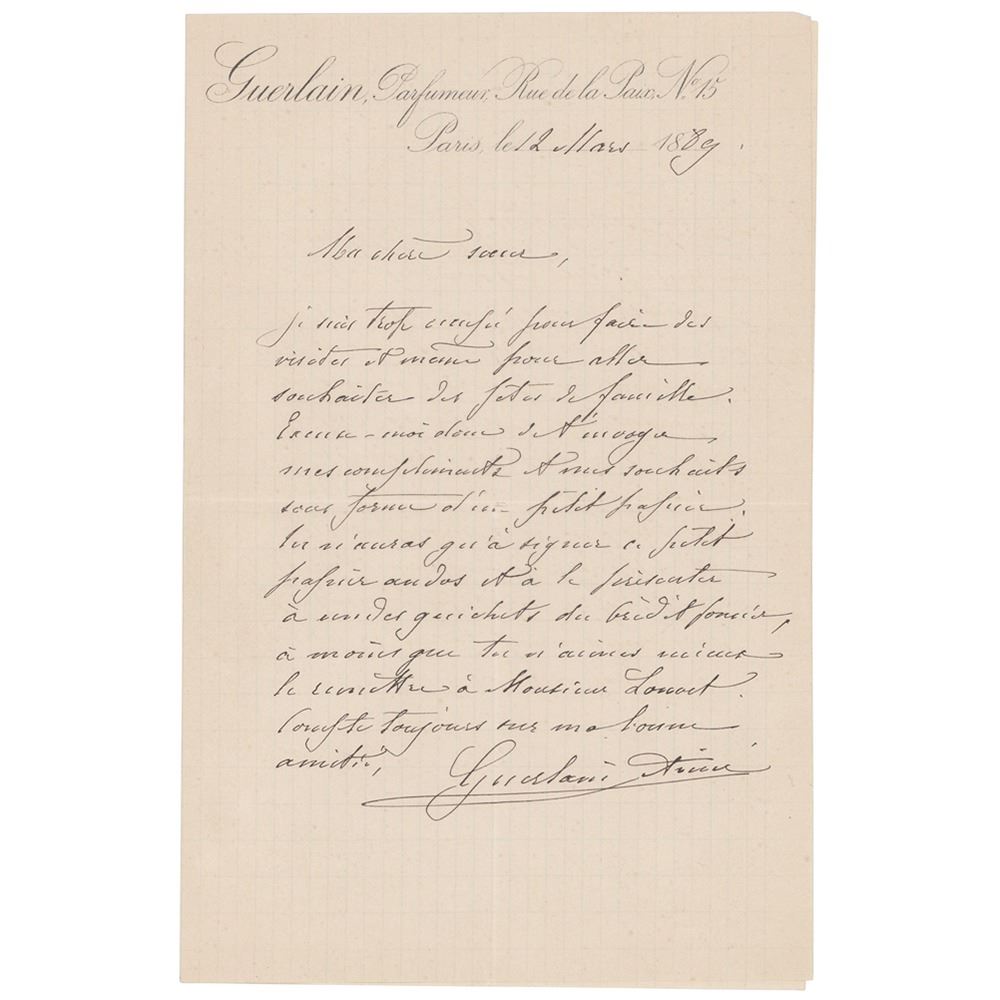 Guerlain, Parfumeur, Rue de la Paix, No. 15
Paris, le 12 Mars 1889.
Ma chère sœur,
je suis trop pour faire des
visites et même pour aller
souhaiter des fêtes de famille.
Excuse-moi donc de t'envoyer
mes compliments et mes souhaits
sous forme d'un petit papier.
tu n'auras qu'à signer ce petit
papier au dos et à le présenter
à un des guichets du Crédit foncier,
à moins que tu n'aimes mieux
le remettre à Monsieur
Compte toujours sur ma bonne
amitié,
Guerlain Aimé